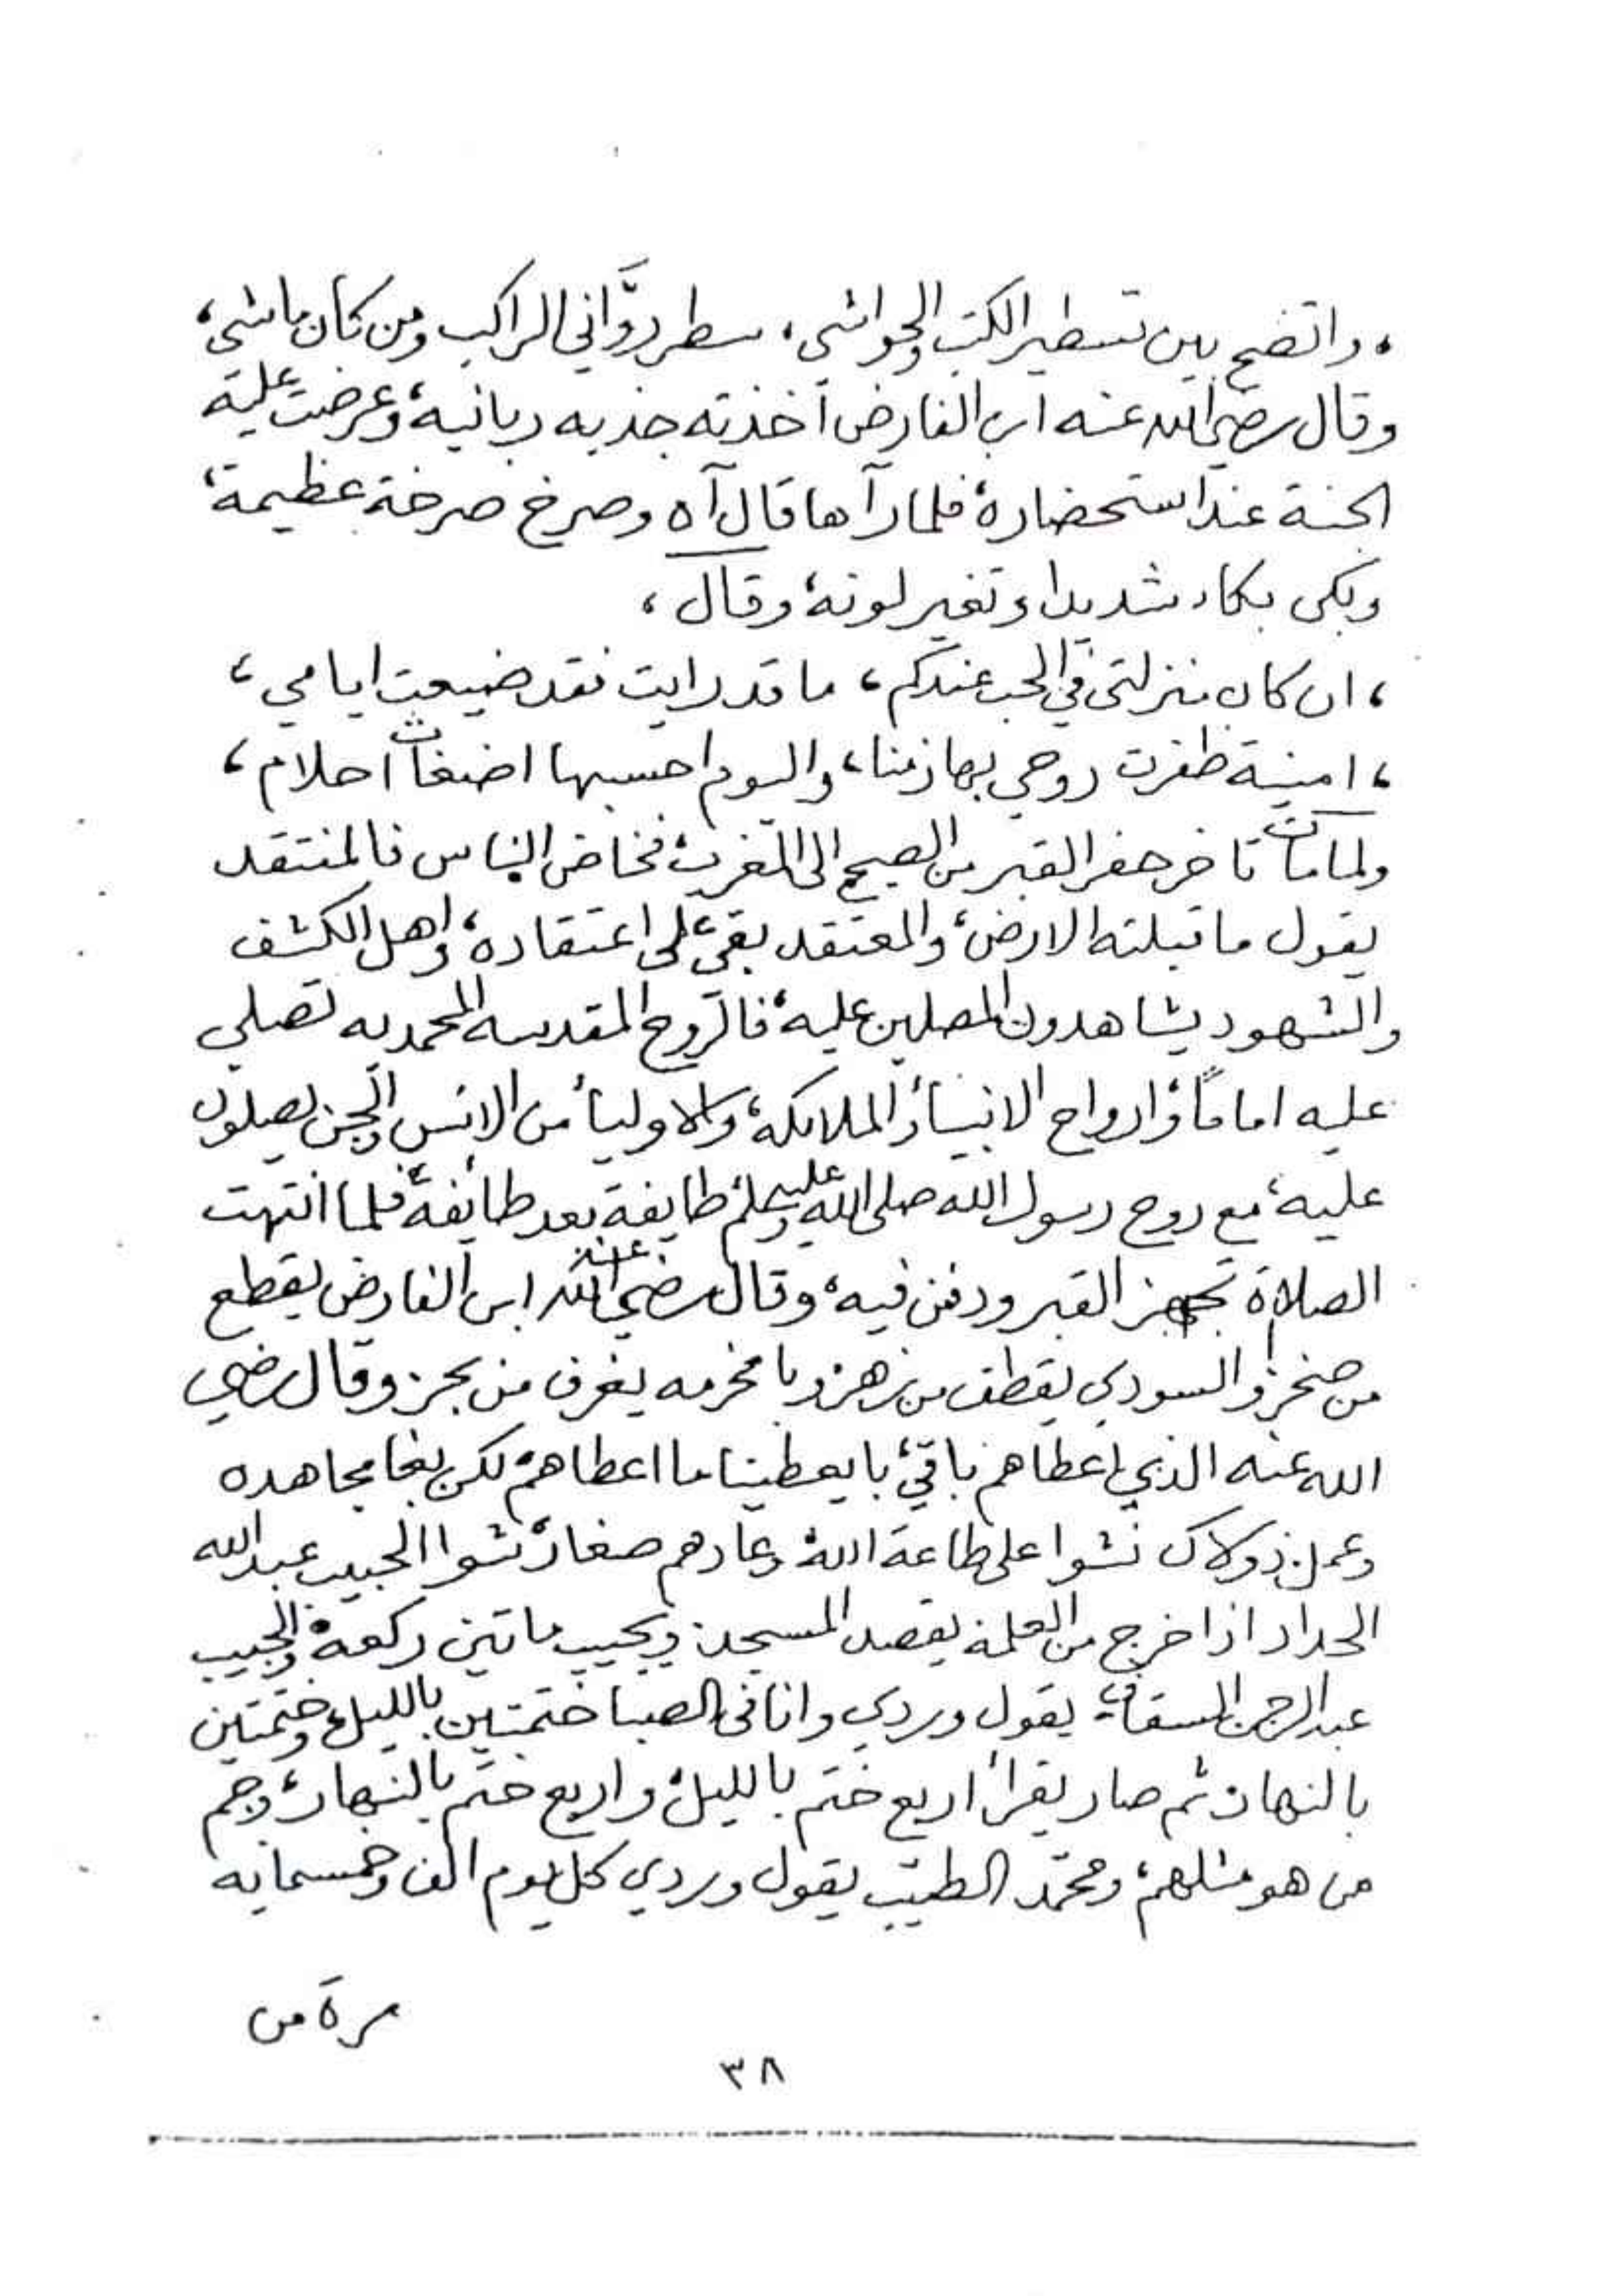 ، واتضح بين تسطير الكتب والحواشي، سطر روَّاني الراكب ومن كان ماشي،
وقال رضي الله عنه ابن الفارض أخذته جذبه ربانية، وعرضت عليه
الجنة عند استحضاره، فلما رآها قال آه وصرخ صرخة عظيمة،
وبكى بكاء شديدا وتغير لونه، وقال،
، ان كان منزلتي في الحب عندكم، ما قد رايت فقد ضيعت ايامي،
، امنية ظفرت روحي بها زمنا، واليوم احسبها اضغاث احلام،
ولما مات تاخر حفر القبر من الصبح الى المغرب، فخاض الناس فالمنتقد
يقول ما قبلته الارض، والمعتقد بقي على اعتقاده، واهل الكشف
والشهود يشاهدون المصلين عليه، فالروح المقدسه المحمديه تصلي
عليه اماماً، وارواح الانبياء، والملائكة، والاولياء من الانس والجن يصلون
عليه، مع روح رسول الله صلى الله عليه وسلم، طايفة بعد طائفة، فلما انتهت
الصلاة تجهز القبر ودفن فيه، وقال رضي الله عنه ابن الفارض يقطع
من صخر، والسودي يقطف من زهر، وبا مخرمه يغرف من بحر، وقال رضي
الله عنه الذي اعطاهم باقي، با يعطينا ما اعطاهم، لكن بغا مجاهده
وعمل، ذولاك نشوا على طاعة الله، وعادهم صغار، شوا الحبيب عبدالله
الحداد اذا خرج من العلمة يقصد المسجد، ويجيب ماتين ركعة، والحبيب
عبدالرحمن السقاف، يقول وردي وانا في الصبا ختمتين بالليل، وختمتين
بالنهار، ثم صار يقرأ اربع ختم بالليل، واربع ختم بالنهار، وجم
من هو مثلهم، ومحمّد الطيّب يقول وردي كل يوم الف وخمسمايه
مرة من
٣٨